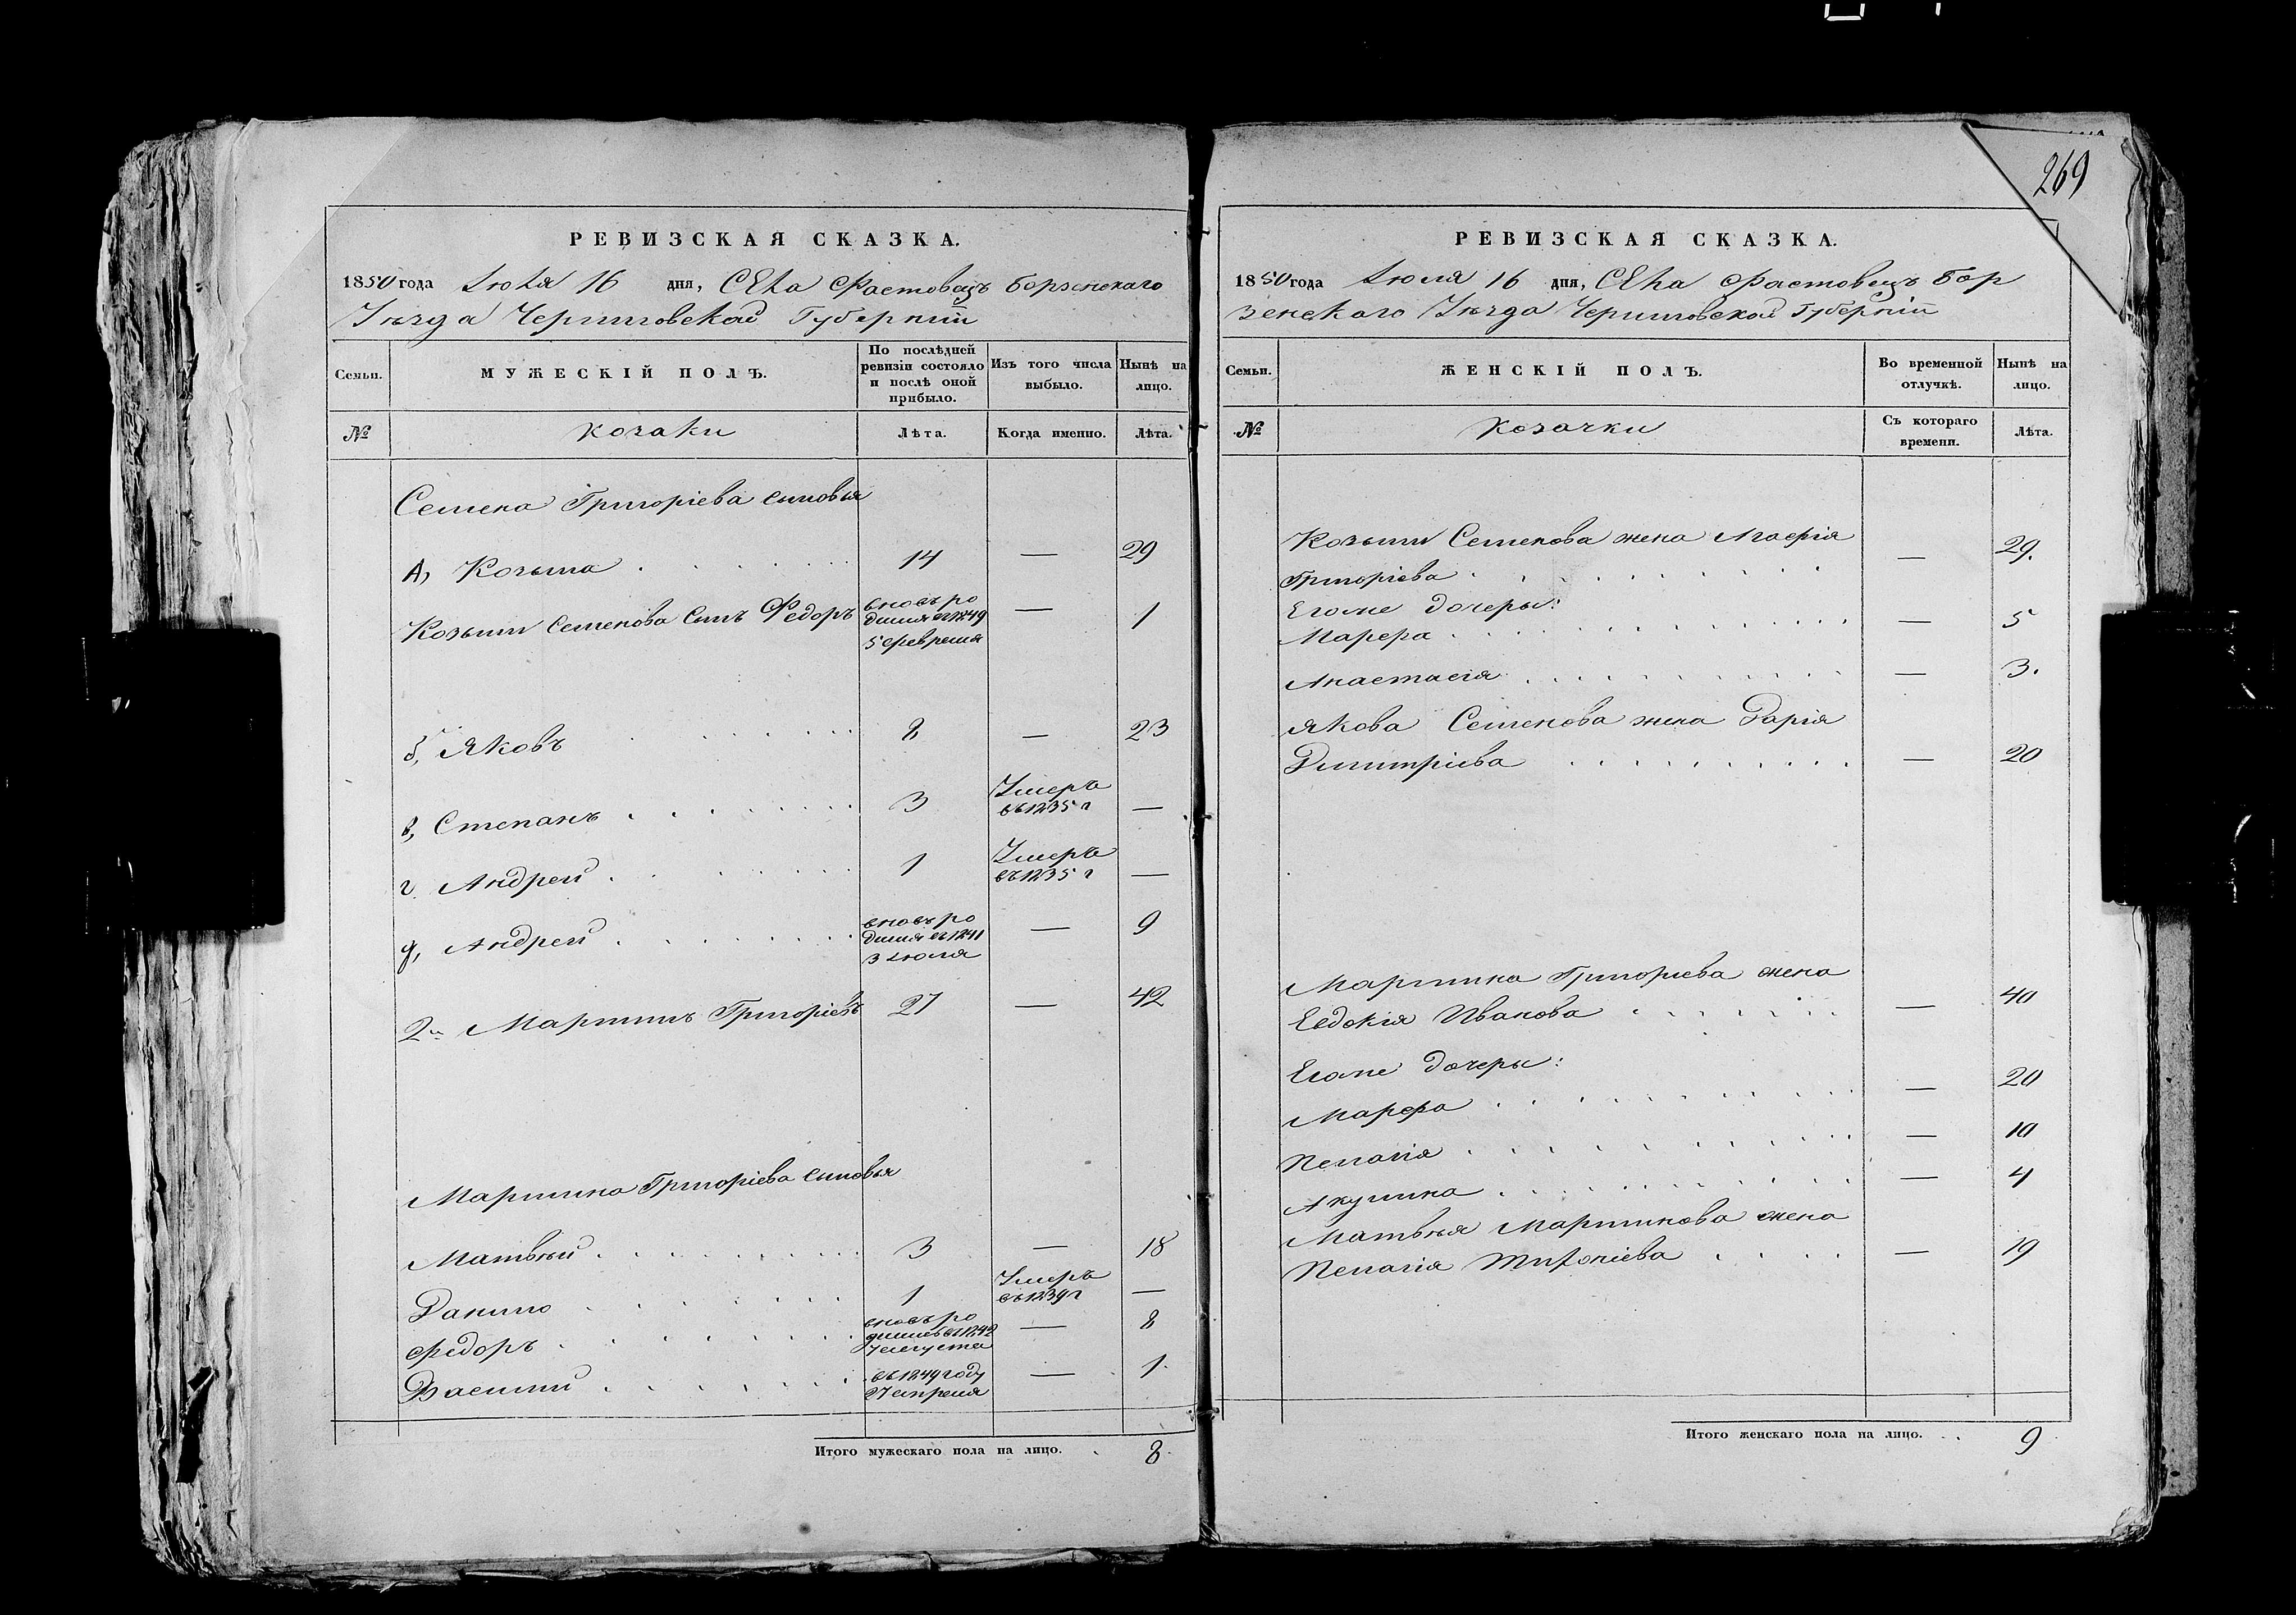 269
РЕВИЗСКАЯ СКАЗКА.
1850 года Июля 16 дня, Села Фастовецъ Борзенскаго
Уѣзда Черниговской Губерніи
Семьи. МУЖЕСКІЙ ПОЛЪ. По послѣдней ревизіи состояло и послѣ оной прибыло. Изъ того числа выбыло. Нынѣ на лицо.
№ козаки Лѣта. Когда именно. Лѣта.
Семена Григоріева сыновья
А, Козьма 14 — 29
Козьмы Семенова сынъ Федоръ вновь ро
дился въ 1849 — 1
5 февраля
б, Яковъ 8 — 23
в, Степанъ 3 Умеръ
въ 1835 г —
г, Андрей 1 Умеръ
въ 1835 г —
д, Андрей вновь ро
дился въ 1841 — 9
3 июля
2й Мартинъ Григоріевъ 27 — 42
Мартина Григоріева сыновья
Матвѣй 3 — 18
Данило 1 Умеръ
въ 1839 г —
Федоръ вновь ро
дился въ 1842 — 8
7 августа
Василий въ 1849 году — 1.
27 апреля
Итого мужескаго пола на лицо. 8.
РЕВИЗСКАЯ СКАЗКА.
1850 года Июля 16 дня, Села Фастовецъ Бор
зенскаго Уѣзда Черниговской Губерніи
Семьи. ЖЕНСКІЙ ПОЛЪ. Во временной отлучкѣ. Нынѣ на лицо.
№ козачки Съ котораго времени. Лѣта.
Козьмы Семенова жена
Григоріева — 29.
Егоже дочеры:
Марфа — 5
Анастасія — 3.
Якова Семенова жена Дарія
Димитріева — 20
Мартина Григориева жена
Евдокія Иванова — 40
Егоже дочеры:
Марфа — 20
Пелагія — 10
Акулина — 4
Матвѣя Мартинова жена
Пелагія — 19
Итого женскаго пола на лицо. 9